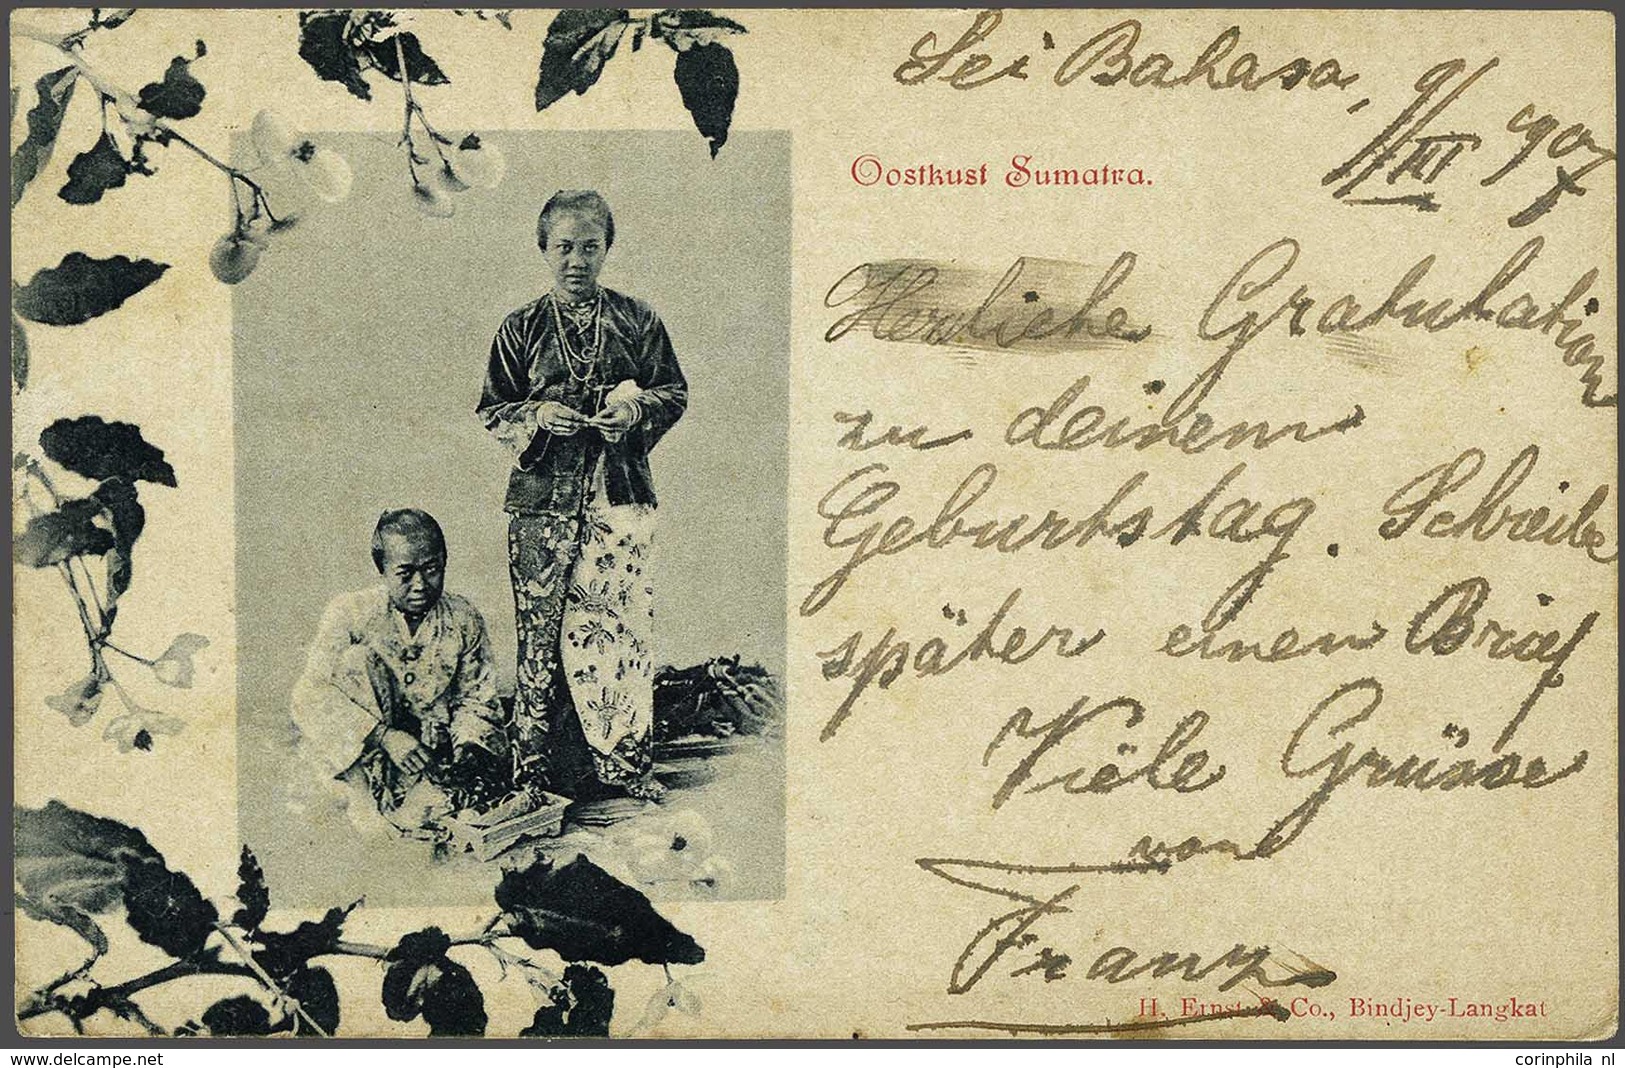 Sei Bahasa, 9/III 1907
Oostkust Sumatra.
Herzliche Gratulation
zu deinem
Geburtstag. Schreibe
später einen Brief
Viele Grüsse
von
Franz
H. Ernst & Co., Bindjey-Langkat
corinphila nl